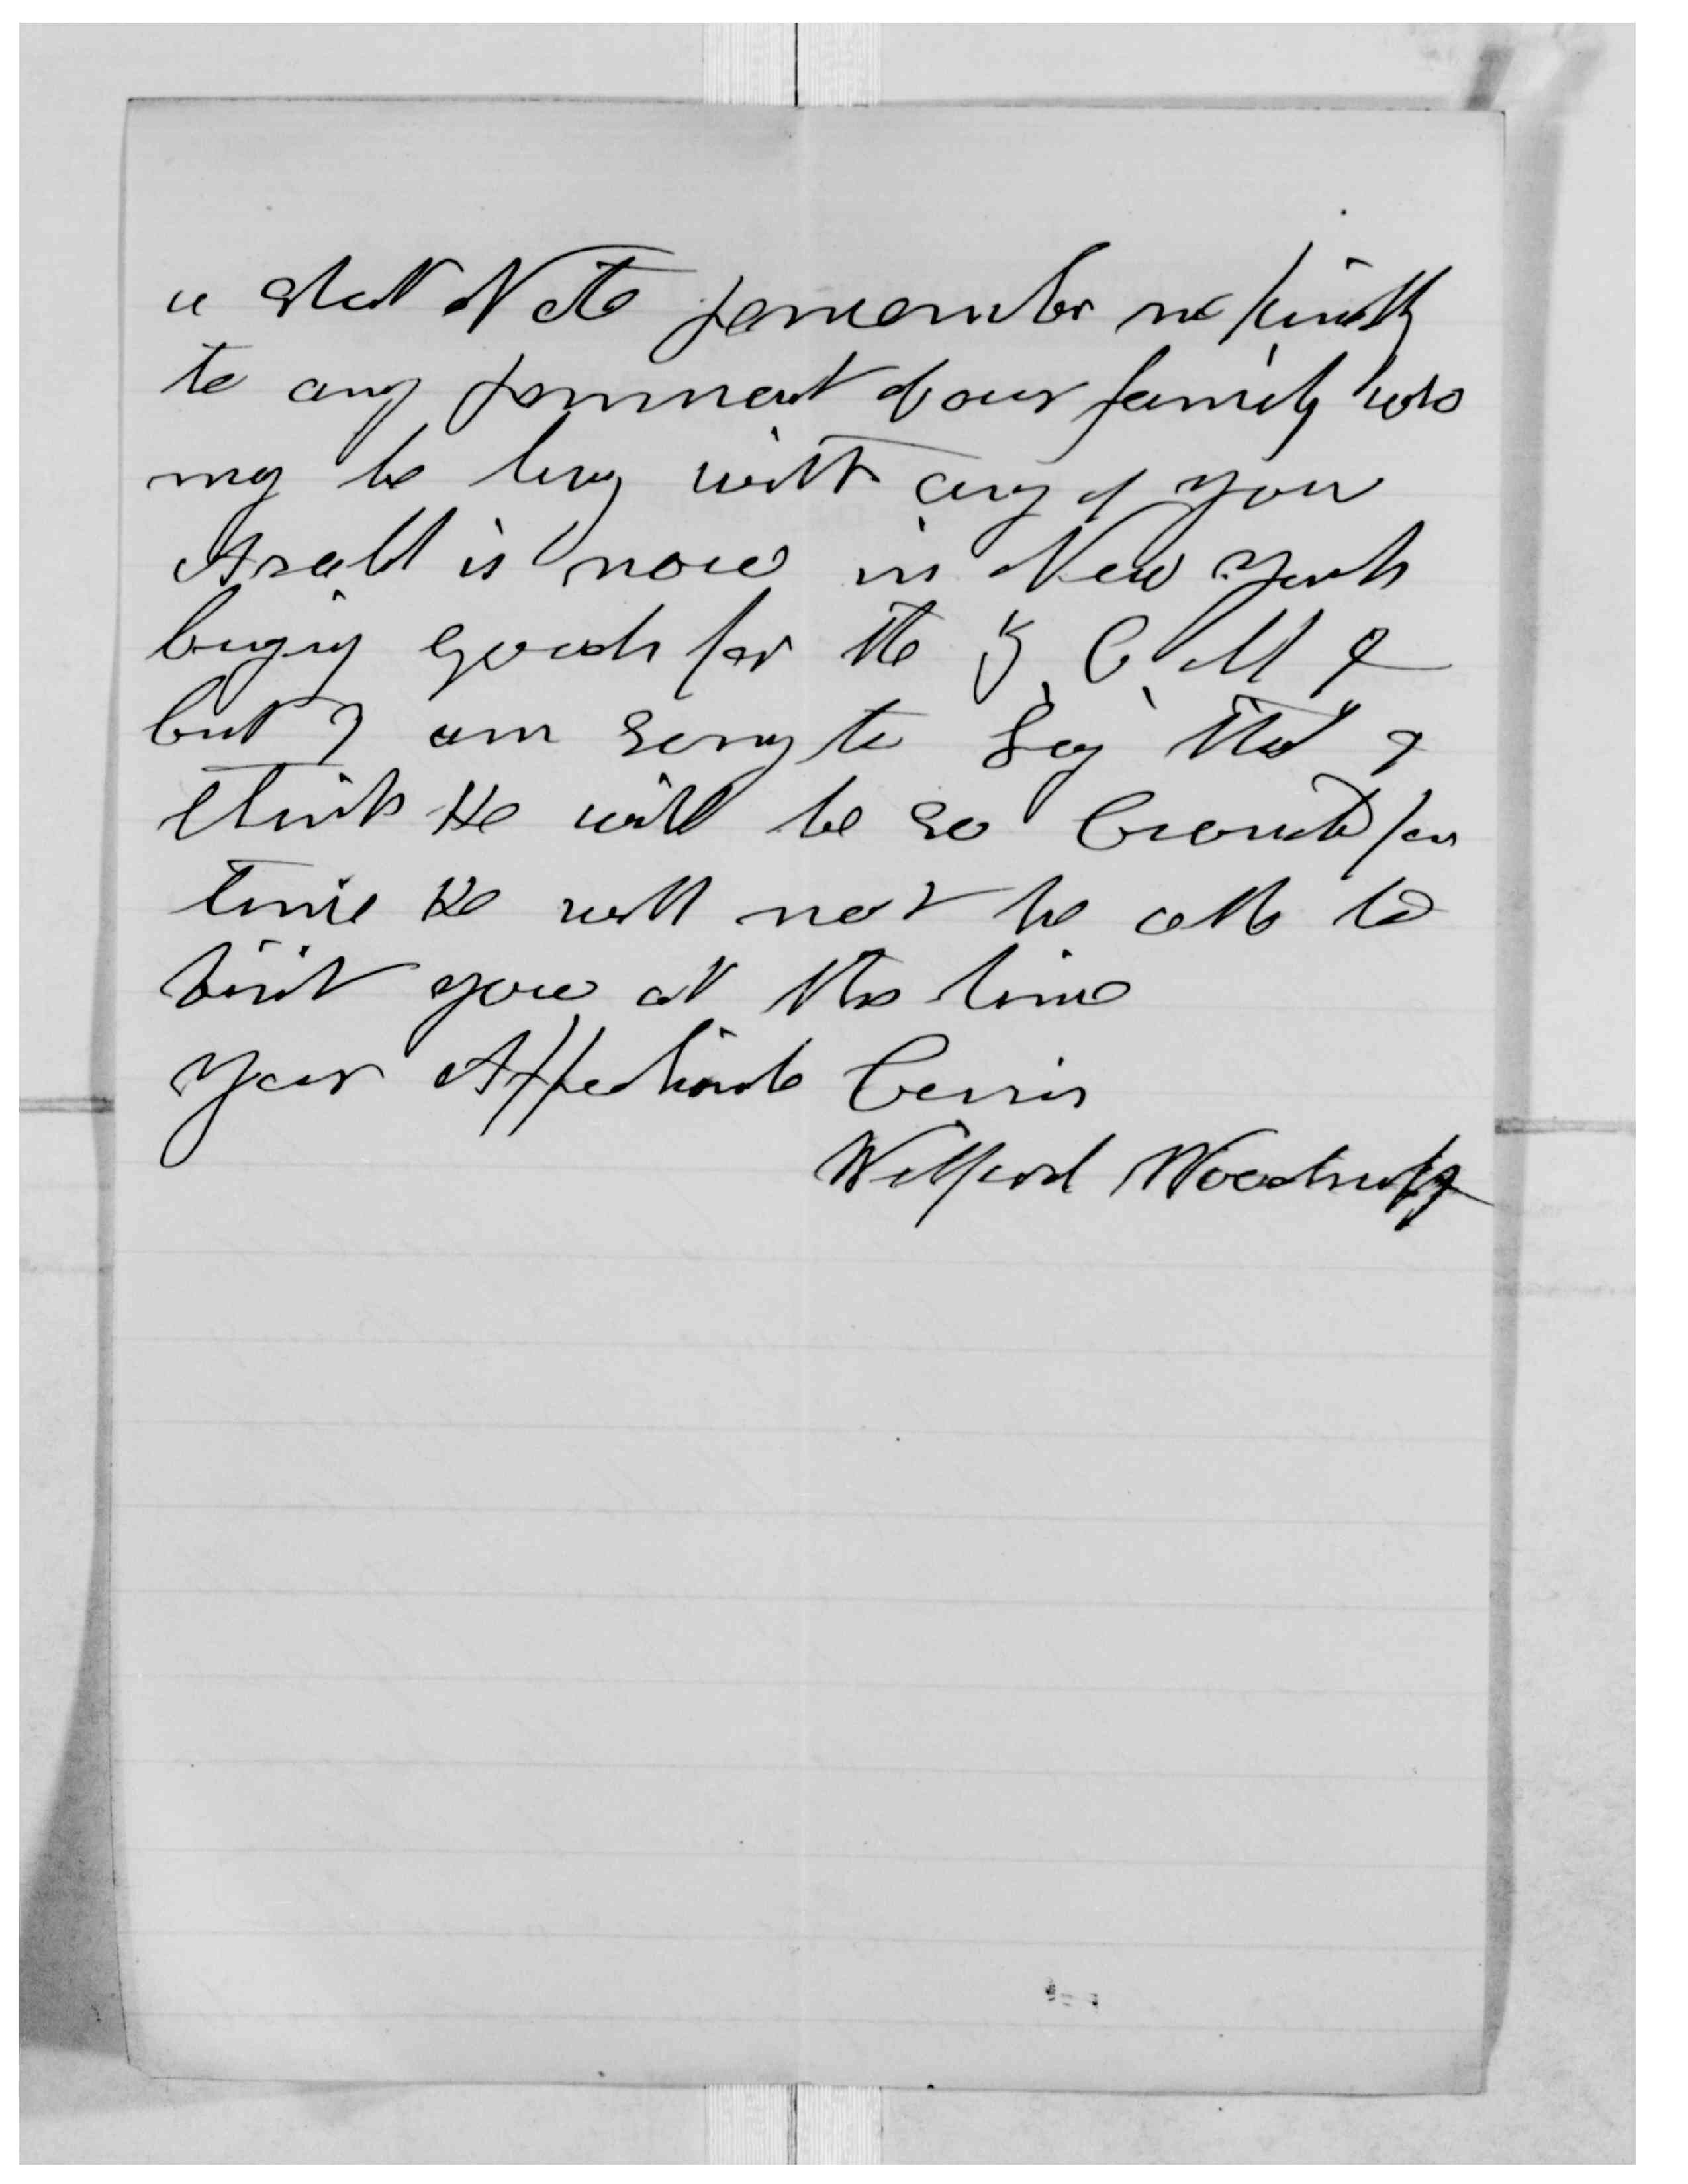 a short Note remember me kindly
to any remnant of our family who
may be living with any of you
Asahel is now in New York
buying goods for the Z C M I
but I am sorry to say that I
think He will be so Crowded for
time He will not be able to
visit you at this time
your Affectionate Cousin
Wilford Woodruff